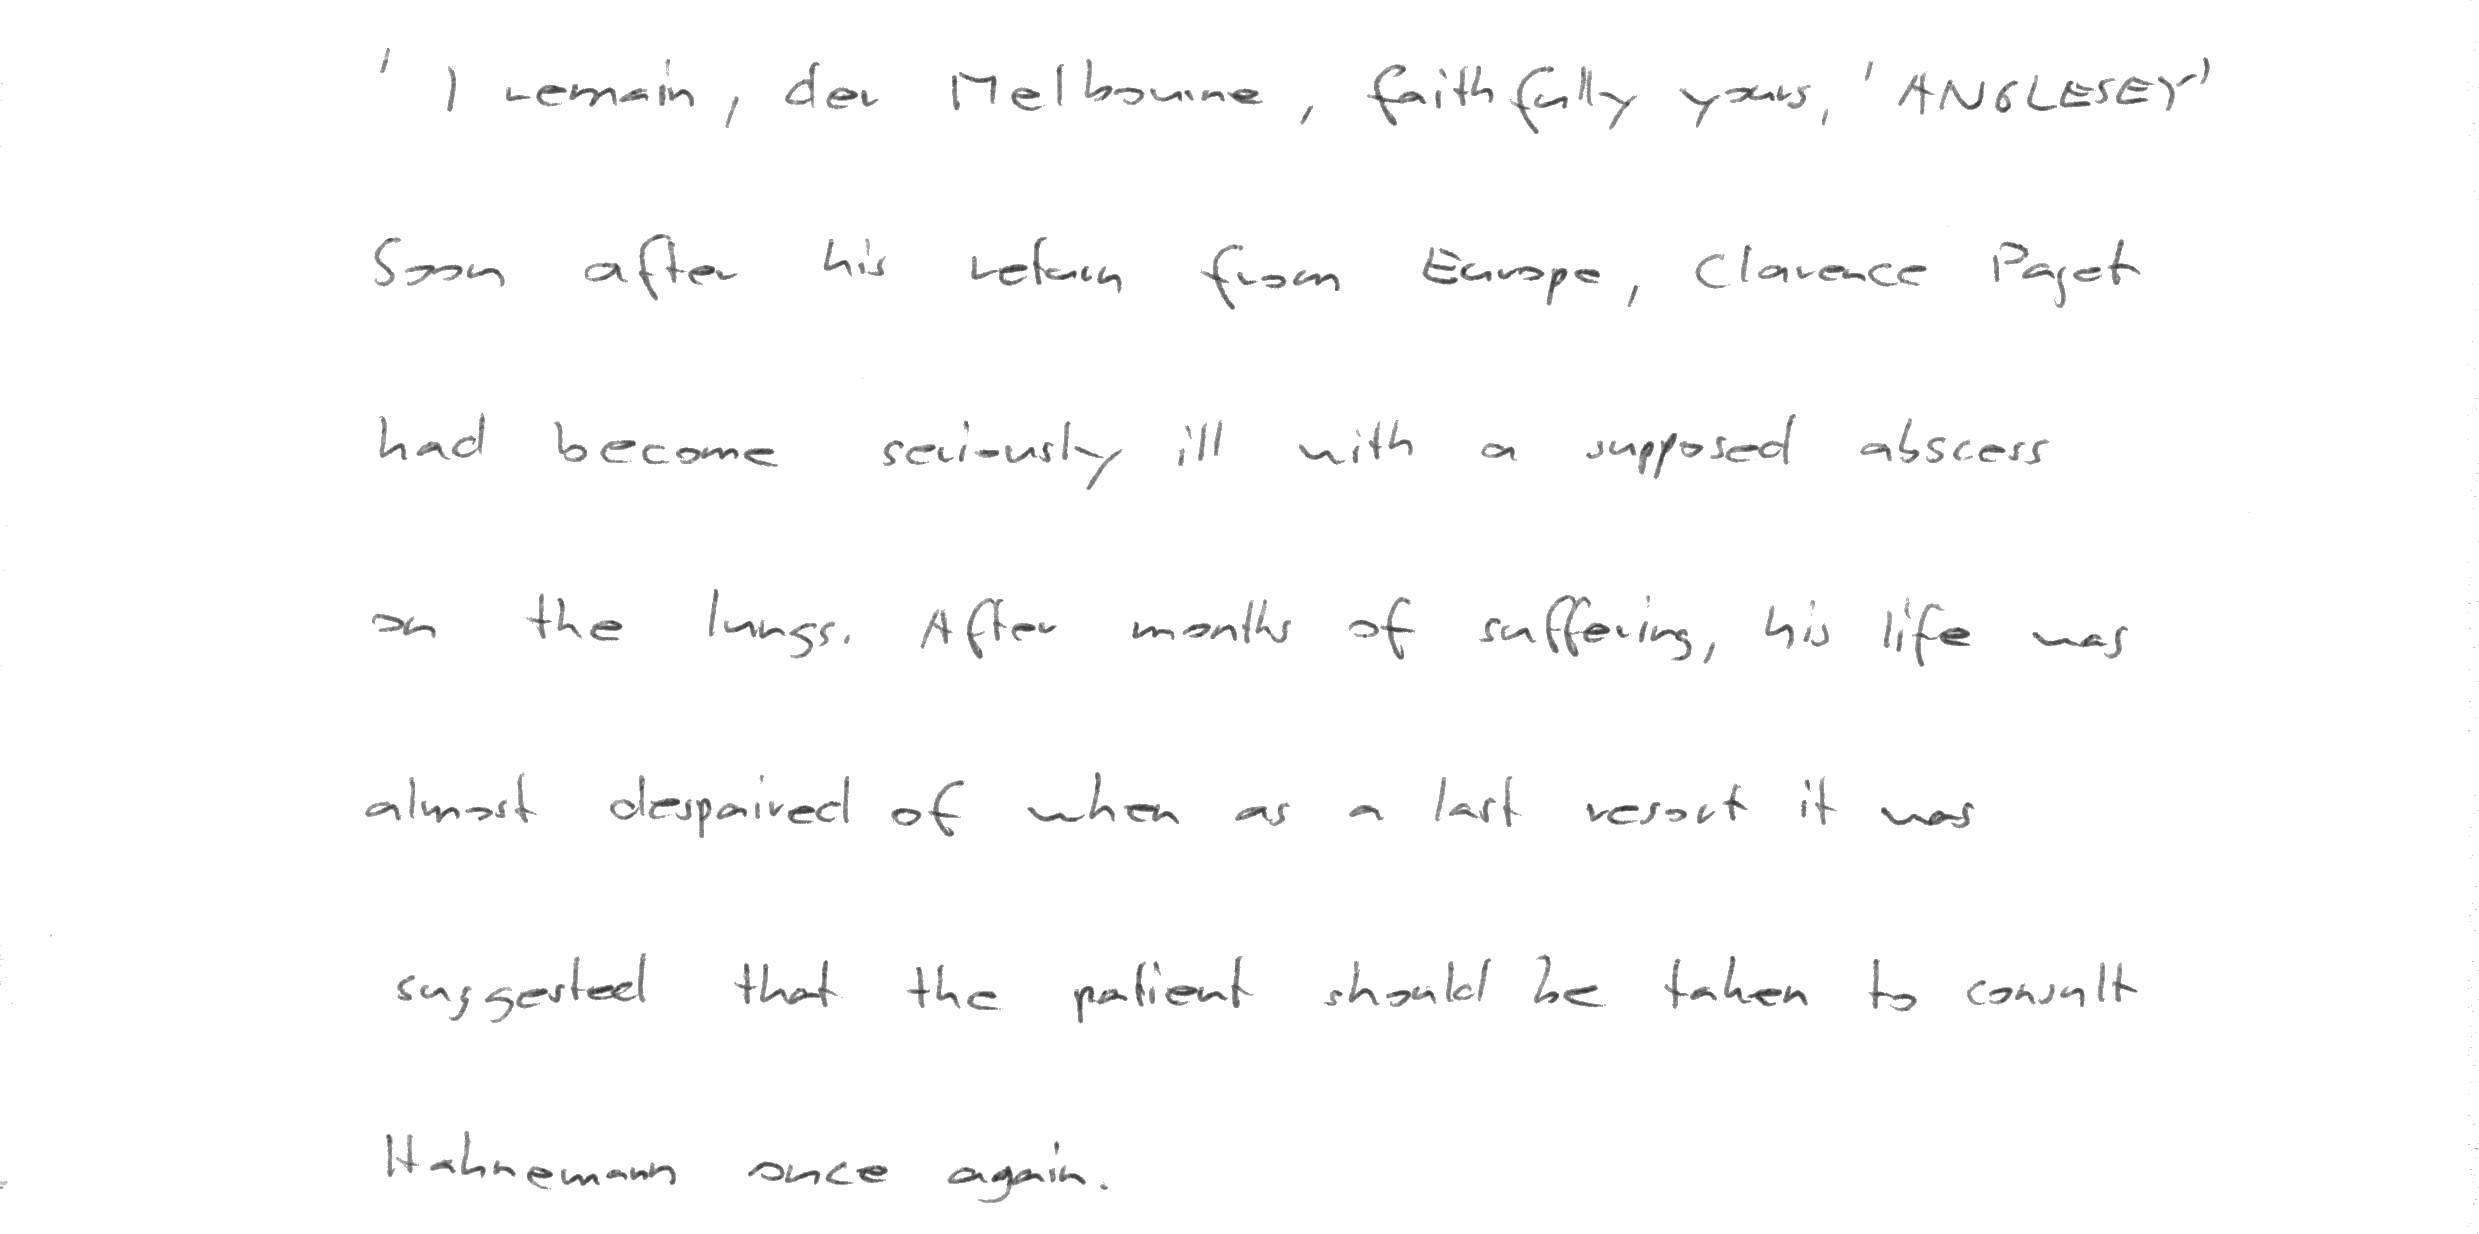 ' I remain, der Melbourne, faithfully yours, 'ANGLESEY'
Soon after his return from Europe, Clarence Paget
had become seriously ill with a supposed abscess
on the lungs. After months of suffering, his life was
almost despaired of when as a last resort it was
suggested that the patient should be taken to consult
Hahnemann once again.